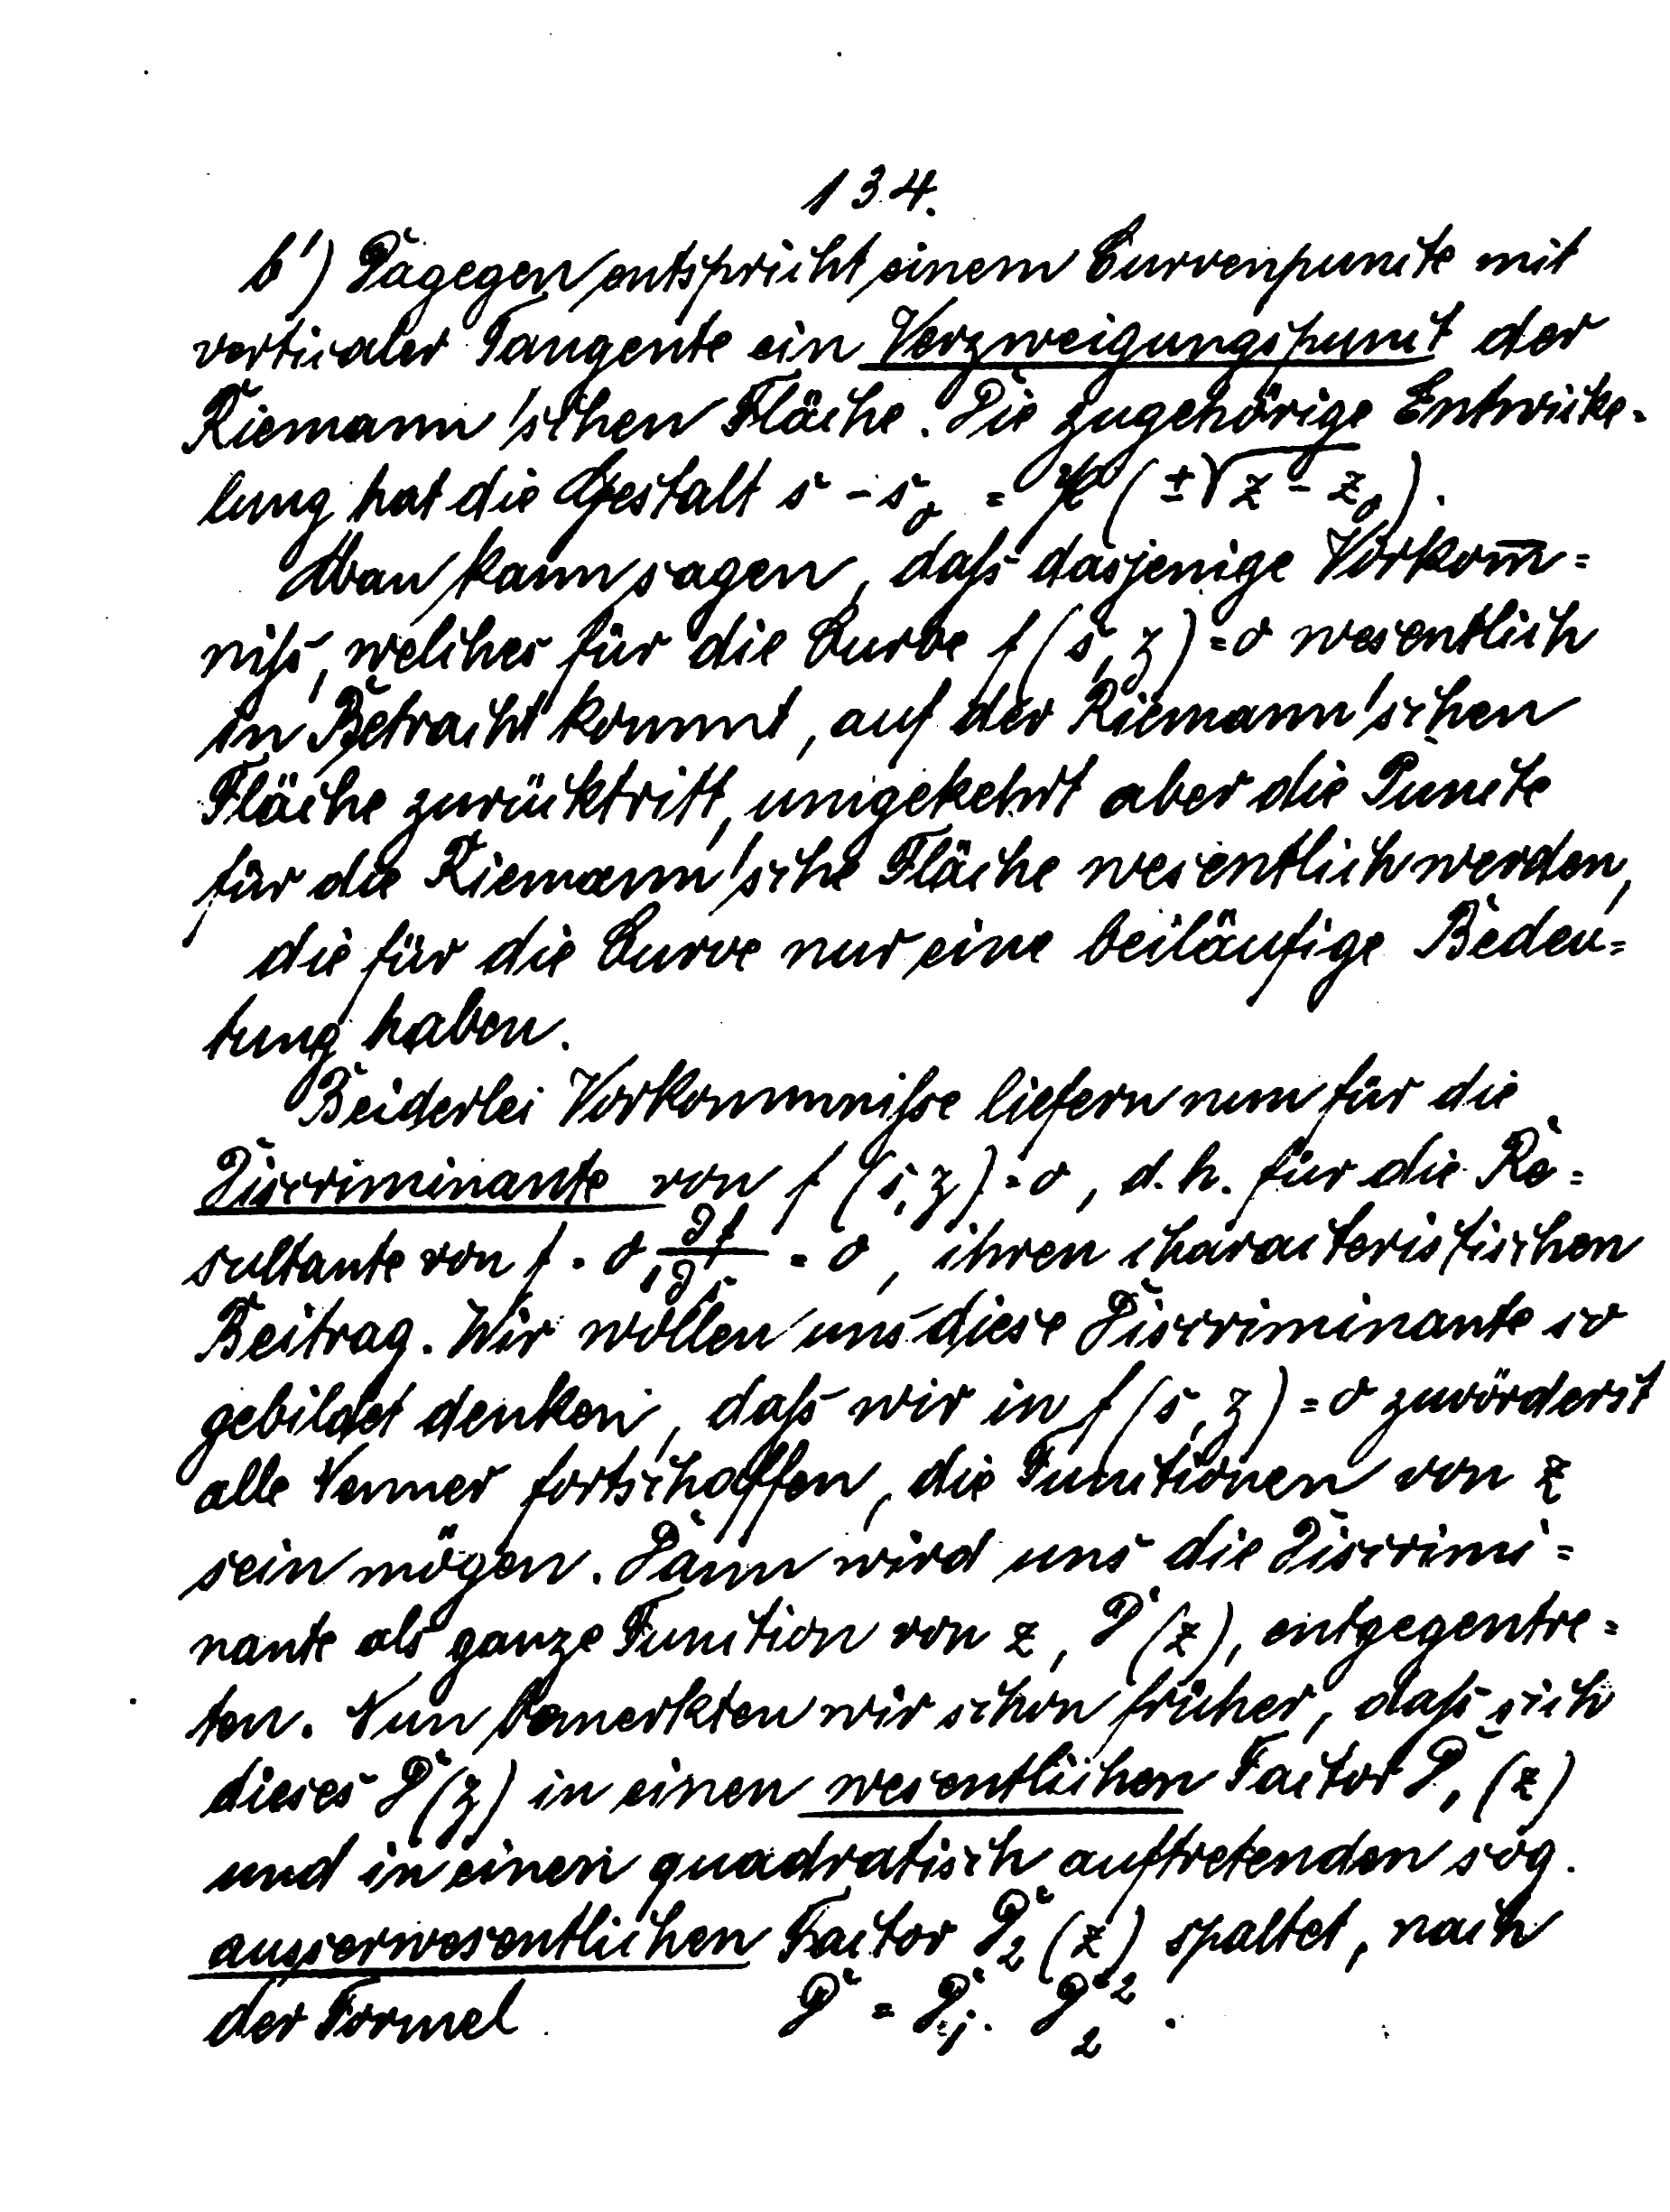 134.
b') Dagegen entspricht einem Curvenpuncte mit
verticaler Tangente ein Verzweigungspunct der
Riemann'schen Fläche. Die zugehörige Entwicke-
lung hat die Gestalt s - s₀ = 𝔓 (±√z - z₀).
Man kann sagen, daß dasjenige Vorkom̅=
niß, welches für die Curve f (s, z) = 0 wesentlich
in Betracht kommt, auf der Riemann'schen
Fläche zurücktritt, umgekehrt aber die Puncte
für die Riemann'sche Fläche wesentlich werden,
die für die Curve nur eine beiläufige Bedeu=
tung haben.
Beiderlei Vorkommniße liefern nun für die
Discriminante von f (s, z) = 0, d. h. für die Re=
sultante von f = 0, ∂f/∂s = 0, ihren characteristischen
Beitrag. Wir wollen uns diese Discriminante so
gebildet denken, daß wir in f (s, z) = 0 zuvörderst
alle Nenner fortschaffen, die Functionen von z
sein mögen. Dann wird uns die Discrimi=
nante als ganze Function von z, D (z), entgegentre=
ten. Nun bemerkten wir schon früher, daß sich
dieses D (z) in einen wesentlichen Factor D₁ (z)
und in einen quadratisch auftretenden sog.
ausserwesentlichen Factor D₂ (z) spaltet, nach
der Formel D = D₁ . D₂² .